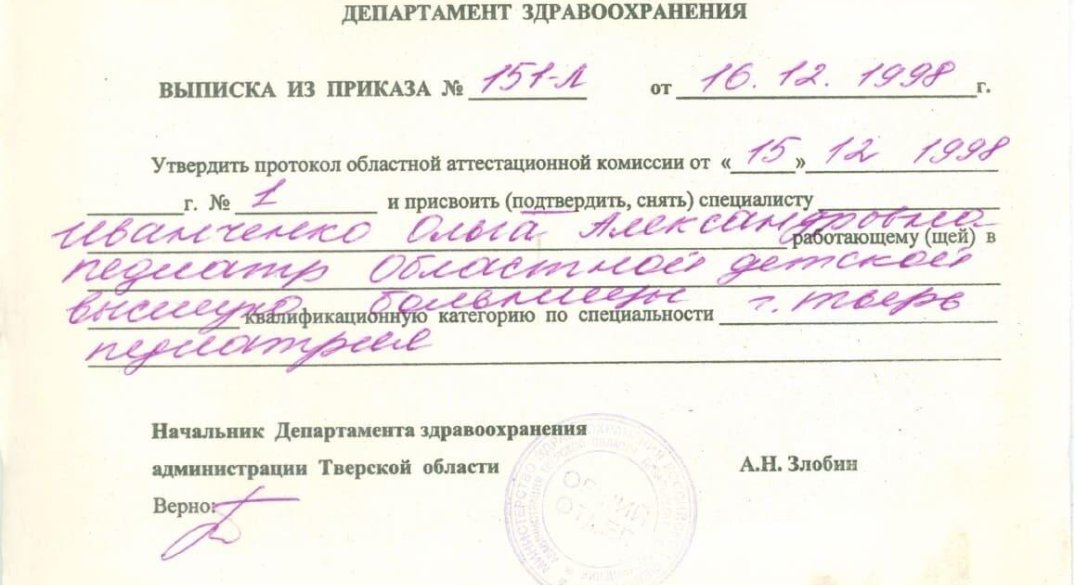 ДЕПАРТАМЕНТ ЗДРАВООХРАНЕНИЯ
ВЫПИСКА ИЗ ПРИКАЗА № 151-Л от 16. 12. 1998 г.
Утвердить протокол областной аттестационной комиссии от « 15 » 12 1998
г. № 1 и присвоить (подтвердить, снять) специалисту
Иванченко Ольга Александровна работающему (щей) в
педиатр Областной детской
больницы г. Тверь
высшую квалификационную категорию по специальности
педиатрия
Начальник Департамента здравоохранения
администрации Тверской области А.Н. Злобин
Верно:
ОБЩИЙ
ОТДЕЛ